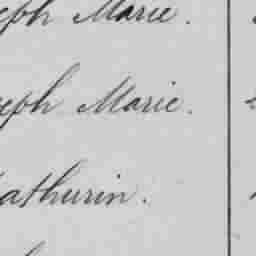 eph Marie.
eph Marie.
athurin.